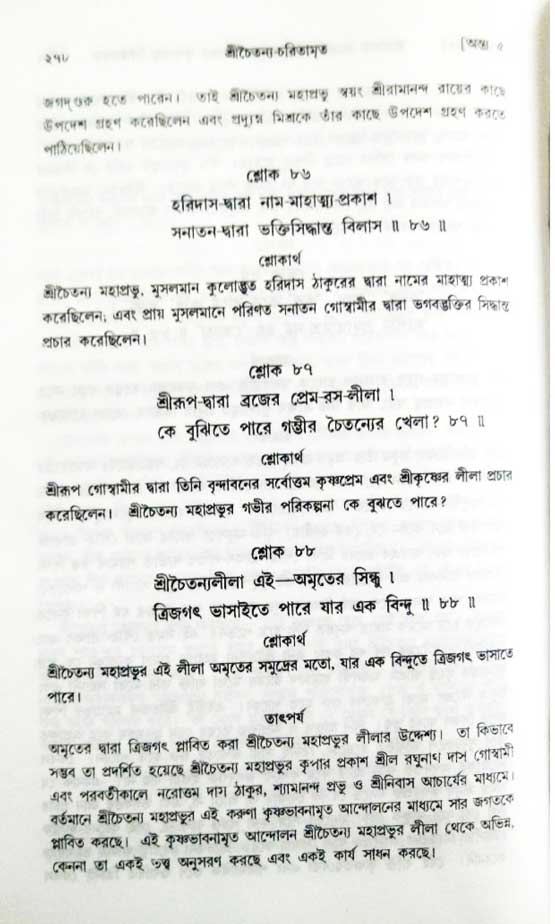 ২৭৮
শ্রীচৈতন্য-চরিতামৃত
[অন্ত্য ৫
জগদ্গুরু হতে পারেন। তাই শ্রীচৈতন্য মহাপ্রভু স্বয়ং শ্রীরামানন্দ রায়ের কাছে
উপদেশ গ্রহণ করেছিলেন এবং প্রদ্যুম্ন মিশ্রকে তাঁর কাছে উপদেশ গ্রহণ করতে
পাঠিয়েছিলেন।
শ্লোক ৮৬
হরিদাস-দ্বারা নাম-মাহাত্ম্য-প্রকাশ ।
সনাতন-দ্বারা ভক্তিসিদ্ধান্ত বিলাস ॥ ৮৬ ॥
শ্লোকার্থ
শ্রীচৈতন্য মহাপ্রভু, মুসলমান কুলোদ্ভূত হরিদাস ঠাকুরের দ্বারা নামের মাহাত্ম্য প্রকাশ
করেছিলেন; এবং প্রায় মুসলমানে পরিণত সনাতন গোস্বামীর দ্বারা ভগবদ্ভক্তির সিদ্ধান্ত
প্রচার করেছিলেন।
শ্লোক ৮৭
শ্রীরূপ-দ্বারা ব্রজের প্রেম-রস-লীলা ।
কে বুঝিতে পারে গম্ভীর চৈতন্যের খেলা? ৮৭ ॥
শ্লোকার্থ
শ্রীরূপ গোস্বামীর দ্বারা তিনি বৃন্দাবনের সর্বোত্তম কৃষ্ণপ্রেম এবং শ্রীকৃষ্ণের লীলা প্রচার
করেছিলেন। শ্রীচৈতন্য মহাপ্রভুর গভীর পরিকল্পনা কে বুঝতে পারে?
শ্লোক ৮৮
শ্রীচৈতন্যলীলা এই—অমৃতের সিন্ধু ।
ত্রিজগৎ ভাসাইতে পারে যার এক বিন্দু ॥ ৮৮ ॥
শ্লোকার্থ
শ্রীচৈতন্য মহাপ্রভুর এই লীলা অমৃতের সমুদ্রের মতো, যার এক বিন্দুতে ত্রিজগৎ ভাসাতে
পারে।
তাৎপর্য
অমৃতের দ্বারা ত্রিজগৎ প্লাবিত করা শ্রীচৈতন্য মহাপ্রভুর লীলার উদ্দেশ্য। তা কিভাবে
সম্ভব তা প্রদর্শিত হয়েছে শ্রীচৈতন্য মহাপ্রভুর কৃপার প্রকাশ শ্রীল রঘুনাথ দাস গোস্বামী
এবং পরবর্তীকালে নরোত্তম দাস ঠাকুর, শ্যামানন্দ প্রভু ও শ্রীনিবাস আচার্যের মাধ্যমে।
বর্তমানে শ্রীচৈতন্য মহাপ্রভুর এই করুণা কৃষ্ণভাবনামৃত আন্দোলনের মাধ্যমে সার জগতকে
প্লাবিত করছে। এই কৃষ্ণভাবনামৃত আন্দোলন শ্রীচৈতন্য মহাপ্রভুর লীলা থেকে অভিন্ন,
কেননা তা একই তত্ত্ব অনুসরণ করছে এবং একই কার্য সাধন করছে।